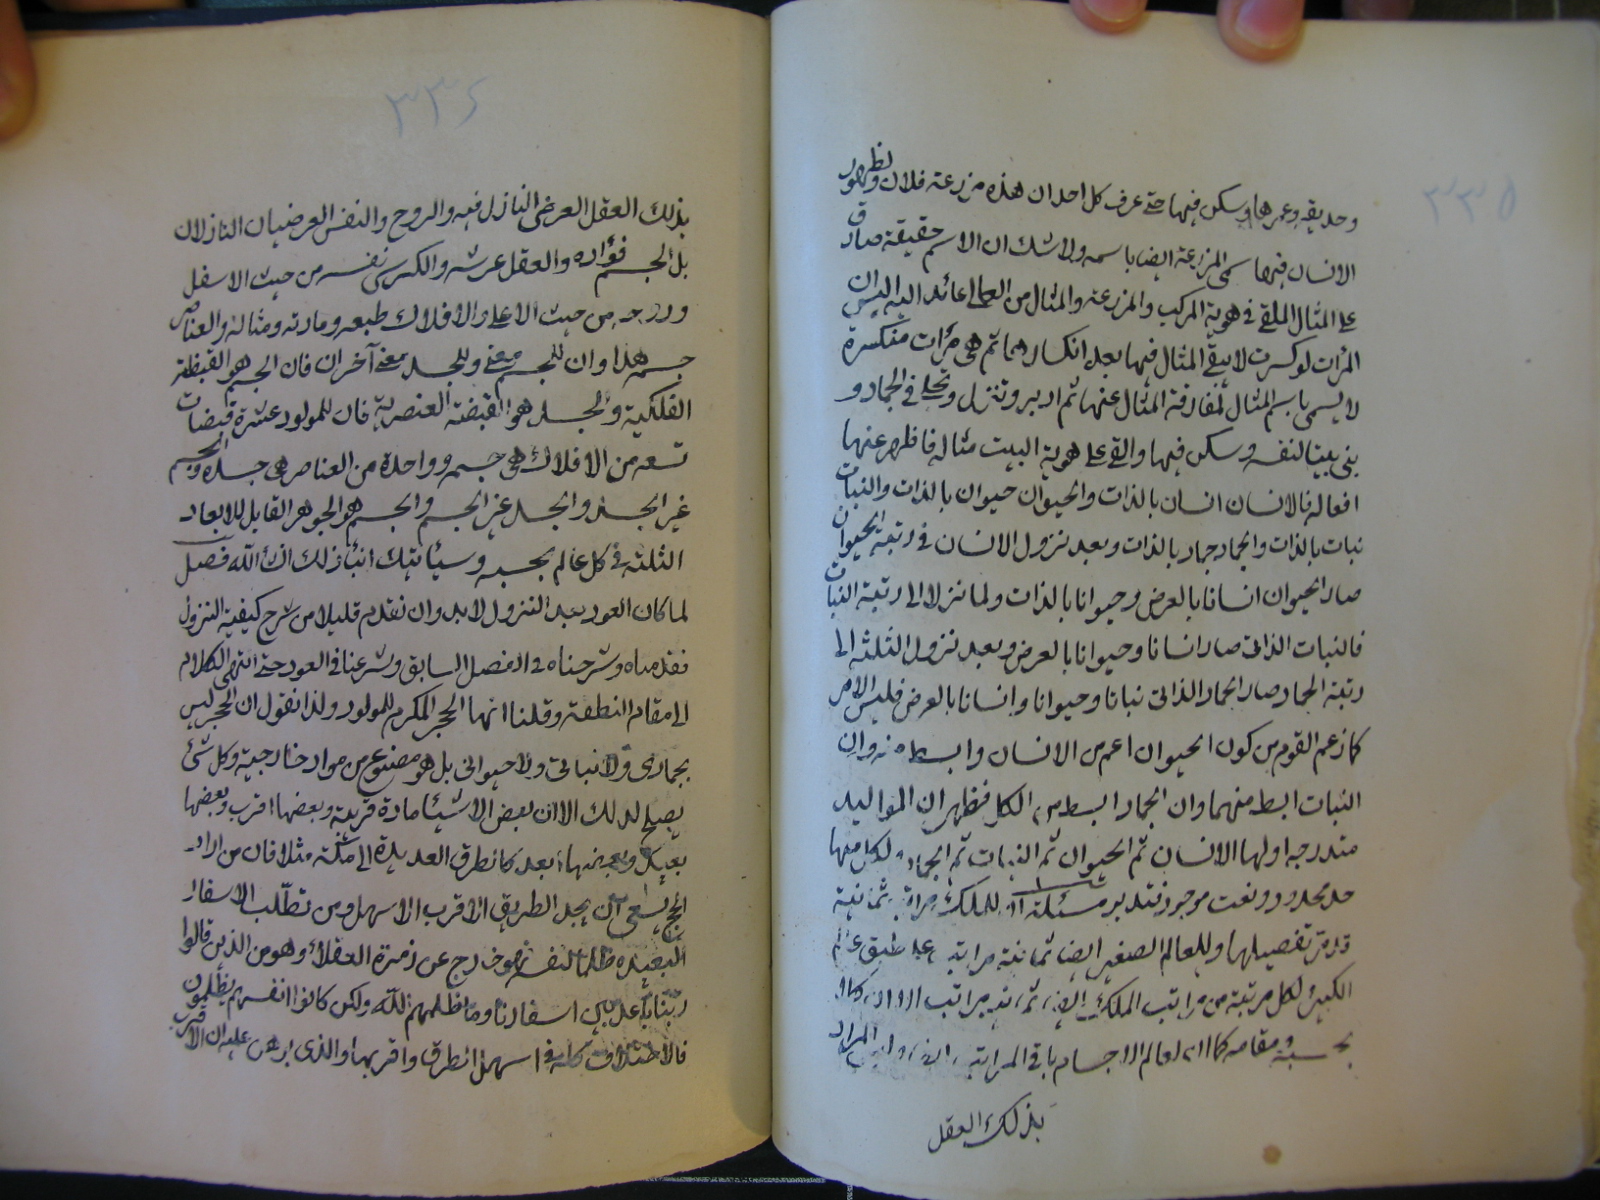 ٣٣٥
وحديقة وعمرها وسكن فيها حتى عرف كل احد ان هذه مزرعة فلان ولظهور
الانسان فيها سمى المزرعة ايضا باسمه ولا شك ان الاسم حقيقة صادق
على المثال الملقى في هوية المركب والمزرعة والمثال من العالى عائد اليه اليس ان
المرآت لو كسرت لا يبقى المثال فيها بعد انكسارها ثم هى مرآت منكسرة
لا يسمى باسم المثال لمفارقة المثال عنها ثم ادبر وتنزل وتجلى في الجماد و
بنى بيتا لنفسه وسكن فيها والقى على هوية البيت مثاله فاظهر عنها
افعاله فالانسان انسان بالذات والحيوان حيوان بالذات والنبات
نبات بالذات والجماد جماد بالذات وبعد نزول الانسان في رتبة الحيوان
صار الحيوان انسانا بالعرض وحيوانا بالذات ولما نزلا الى رتبة النبات
فالنبات الذاتى صار انسانا وحيوانا بالعرض وبعد نزول الثلثة الى
رتبة الجماد صار الجماد الذاتى نباتا وحيوانا وانسانا بالعرض فليس الامر
كما زعم القوم من كون الحيوان اعم من الانسان وابسط منه وان
النبات ابسط منهما وان الجماد ابسط من الكل فظهر ان المواليد
متدرجة اولها الانسان ثم الحيوان ثم النبات ثم الجماد ولكل منها
حد محدود ونعت موجود فتدبر مسئلة للملك مراتب ثمانية
قد مر تفصيلها وللعالم الصغير ايضا ثمانية مراتب على طبق عالم
الكبير ولكل مرتبة من مراتب الملك ايضا مراتب
بحسبه ومقامه كما ان لعالم الاجسام باقى المراتب ايضا وليس المراد
بذلك العقل
٣٣٦
بذلك العقل العرضى النازل فيه والروح والنفس العرضيان النازلان
بل الجسم فؤاده والعقل عرشه والكرسى نفسه من حيث الاسفل
وروحه من حيث الاعلى والافلاك طبعه ومادته ومثاله والعناصر
جسمه هذا وان للجسم معنى وللجسد معنى آخران فان الجسم هو القبضة
الفلكية والجسد هو القبضة العنصرية فان للمولود عشرة قبضات
تسعه من الافلاك هى جسمه وواحدة من العناصر هى جسده والجسم
غير الجسد والجسد غير الجسم والجسم هو الجوهر القابل للابعاد
الثلثة في كل عالم بحسبه وسيأتيك انباء ذلك انشاء الله فصل
لما كان العود بعد النزول لابد وان نقدم قليلا من شرح كيفية النزول
فقدمناه وشرحناه في الفصل السابق وشرعنا في العود حتى انتهى الكلام
الى مقام النطفة وقلنا انها الحجر المكرم للمولود ولذا نقول ان الحجر ليس
بجمادى ولا نباتى ولا حيوانى بل هو مصنوع من مواد خارجية وكل شئ
يصلح لذلك الا ان بعض الاشياء مادة قريبة وبعضها اقرب وبعضها
بعيد وبعضها ابعد كالطرق العديدة الى مكة مثلا فان من اراد
الحج يسعى ان يجد الطريق الاقرب الاسهل ومن تطلب الاسفار
البعيدة ظلما لنفسه فهو خارج عن زمرة العقلاء وهو من الذين قالوا
ربنا باعد بين اسفارنا وما ظلمهم الله ولكن كانوا انفسهم يظلمون
فالاختلاف كله في اسهل الطرق واقربها والذى ابرهن عليه ان الاقرب